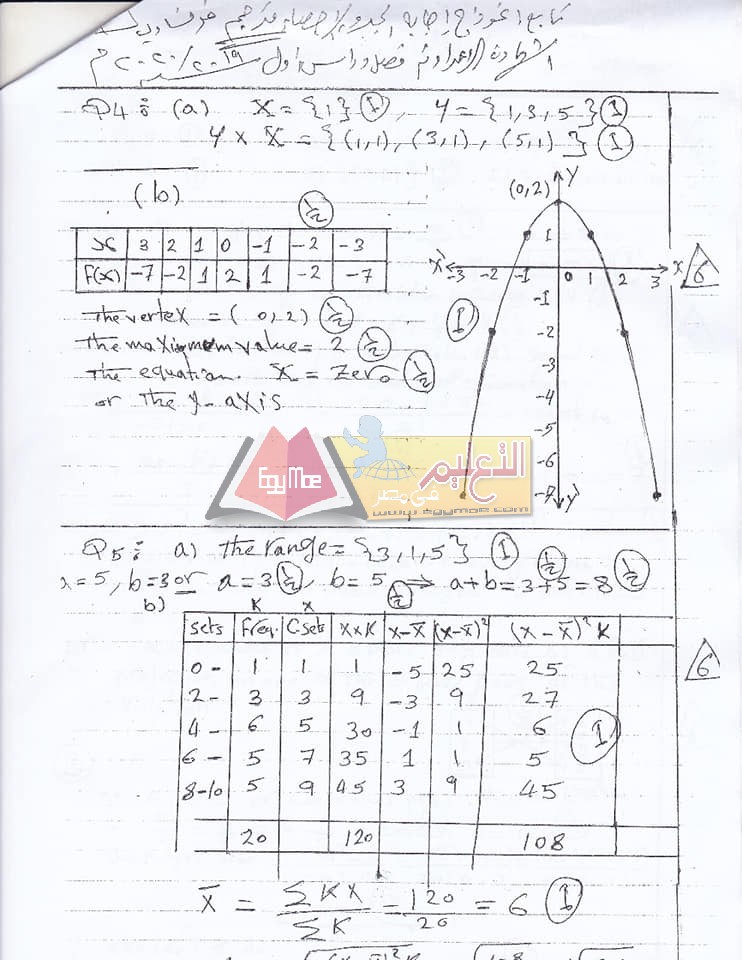 Q4: (a) X = {1} ①, Y = {1, 3, 5} ①
Y × X = {(1,1), (3,1), (5,1)} ①
(b)
½
x 3 2 1 0 -1 -2 -3
F(x) -7 -2 1 2 1 -2 -7
The vertex = (0, 2) ½
The maximum value = 2 ½
The equation X = Zero ½
or The y-axis
(0, 2) Y
1
X' -3 -2 -1 0 1 2 3 X
-1
①
-2
-3
-4
-5
-6
-7 Y'
6
EgyMoe
التعليم
في مصر
www.egymoe.com
Q5: a) The range = {3, 1, 5} ① ½
a = 5, b = 3 or a = 3 ½, b = 5 ⇒ a + b = 3 + 5 = 8 ½
b) K X ½
Sets Freq. C.sets X×K X-X̄ (X-X̄)² (X-X̄)² K
0 - 1 1 1 -5 25 25
2 - 3 3 9 -3 9 27
4 - 6 5 30 -1 1 6
6 - 5 7 35 1 1 5
8-10 5 9 45 3 9 45
①
20 120 108
6
X̄ = ΣKX / ΣK = 120 / 20 = 6 ①